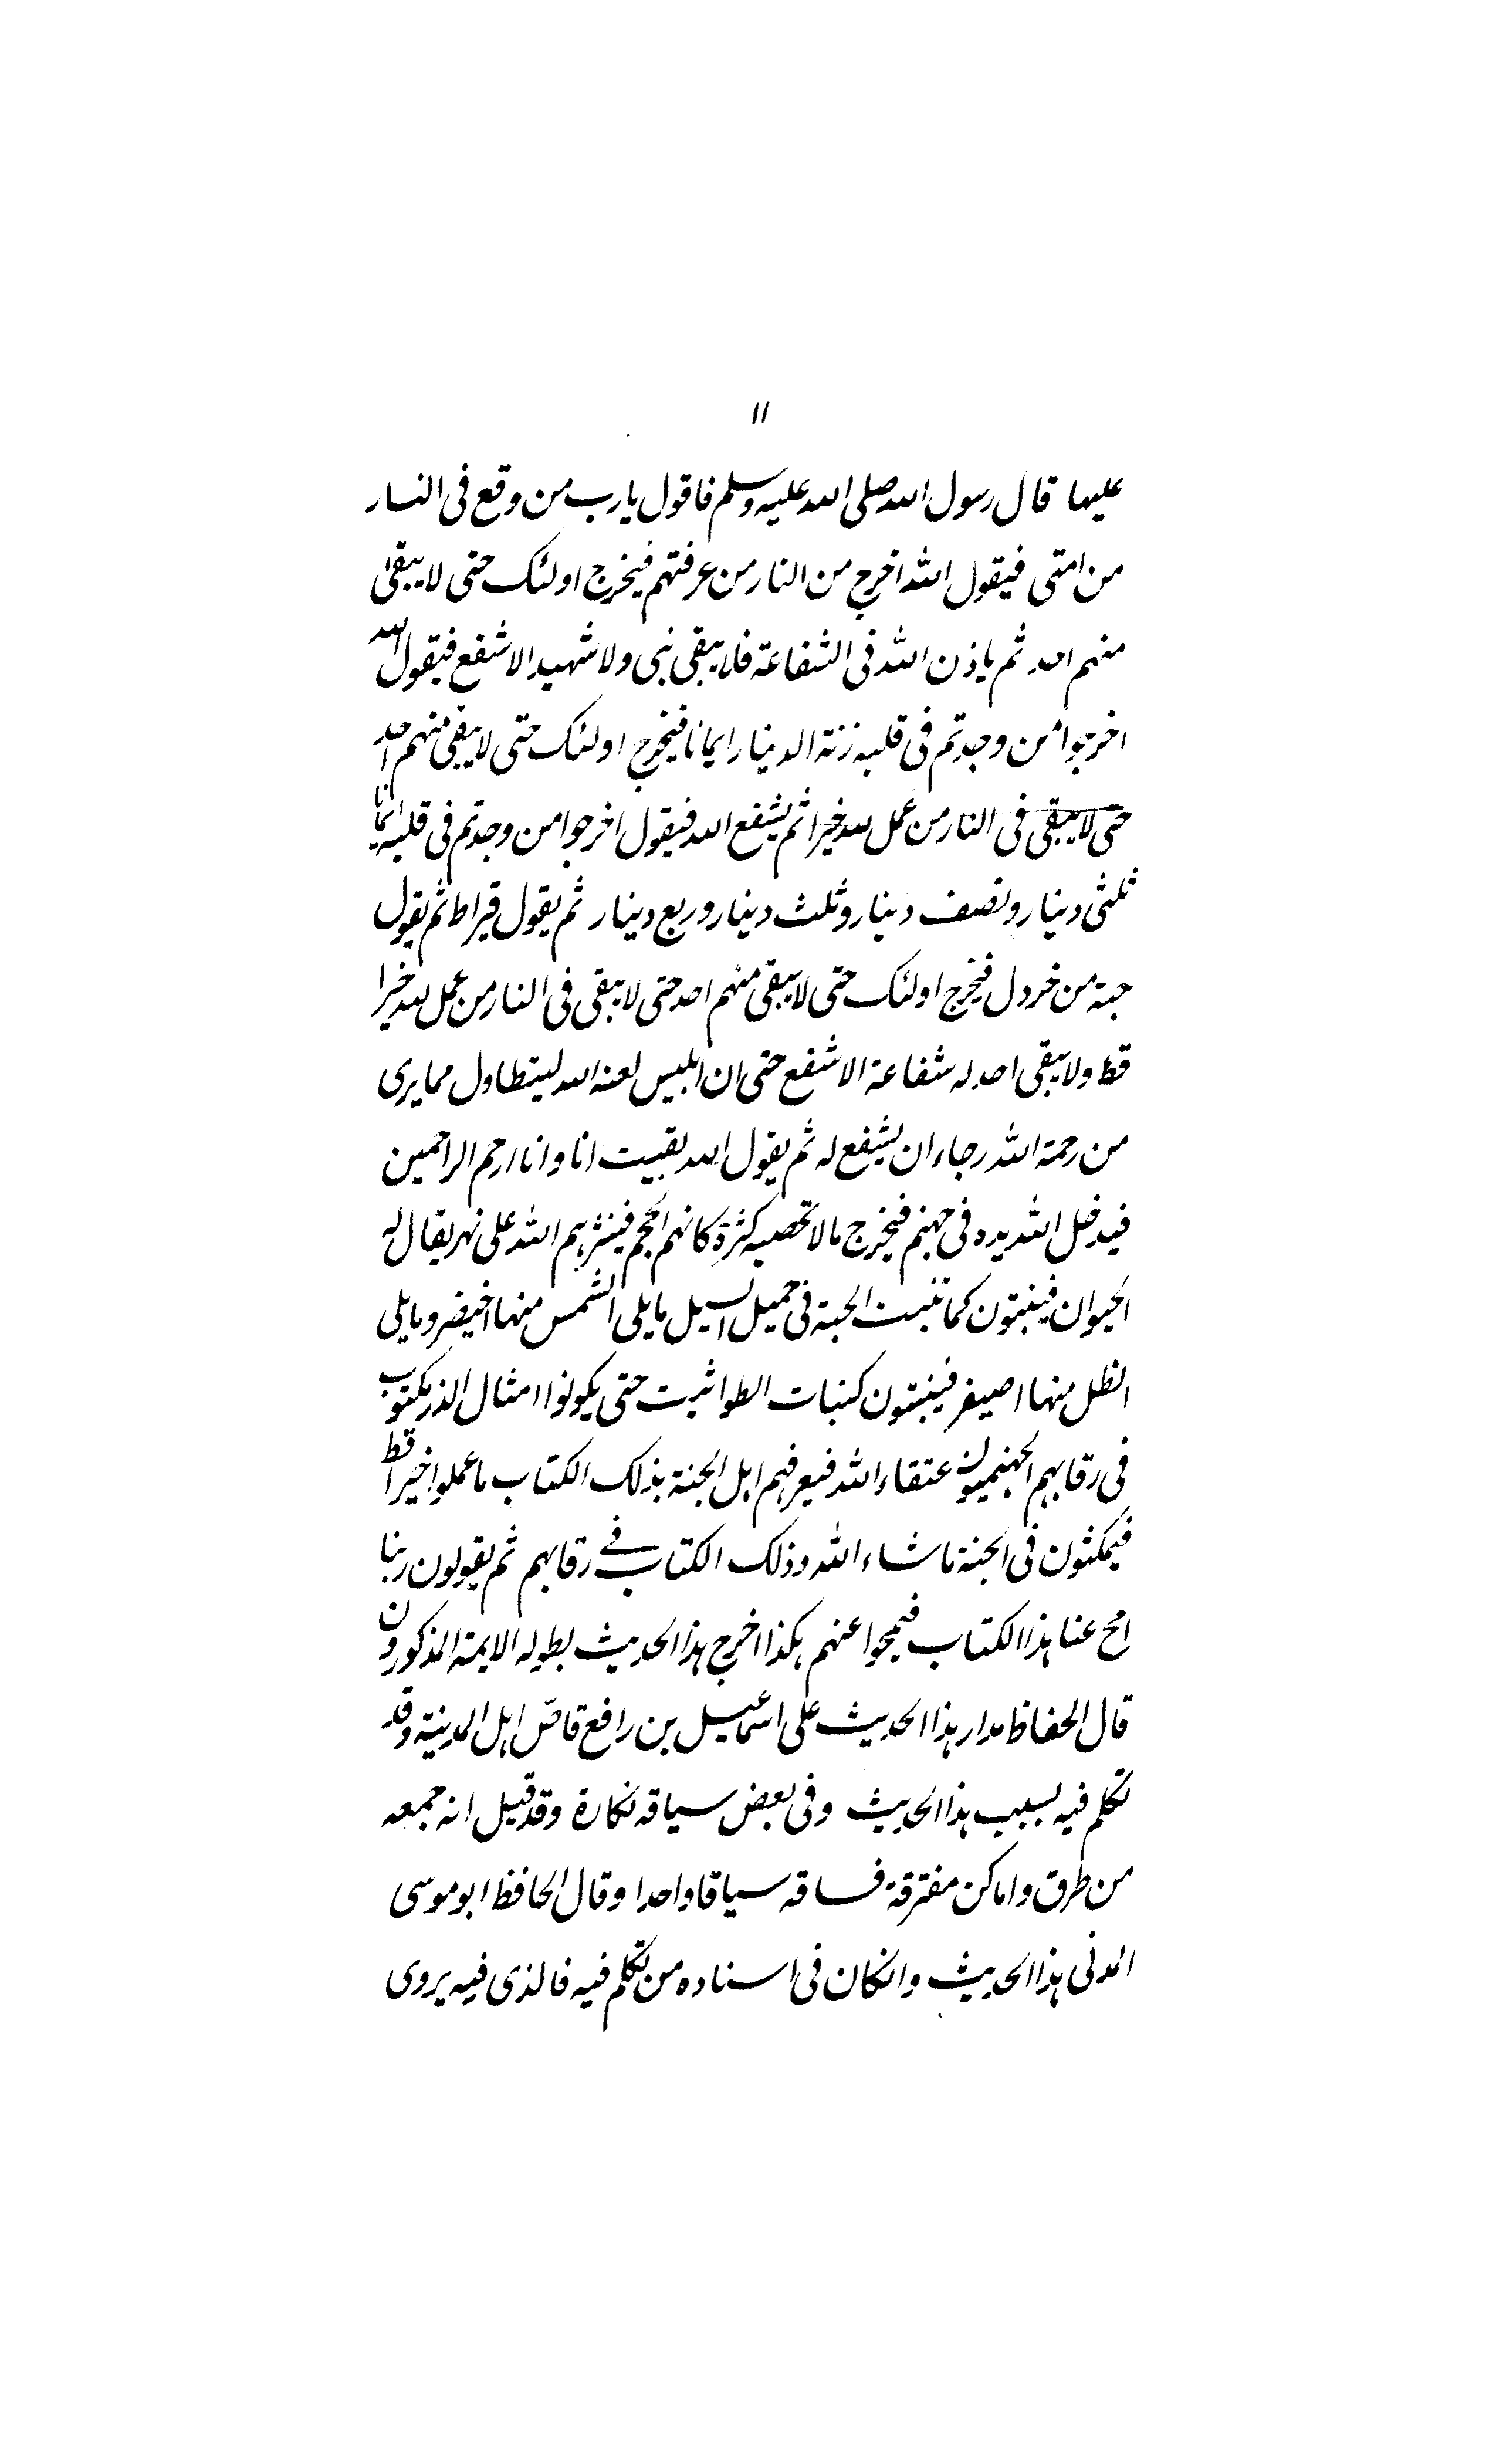 ۱۱
عليها قال رسول الله صلى الله عليه وسلم فاقول يا رب من وقع فى النار
من امتى فيقول الله اخرج من النار من عرفتهم فيخرج اولئك حتى لا يبقى
منهم احد ثم ياذن الله فى الشفاعة فلا يبقى نبى ولا شهيد الا شفع فيقول الله
اخرجوا من وجدتم فى قلبه زنة الدينار ايمانا فيخرج اولئك حتى لا يبقى منهم احد
حتى لا يبقى فى النار من عمل لله خيرا ثم يشفع الله فيقول اخرجوا من وجدتم فى قلبه ايمانا
ثلثى دينار ونصف دينار وثلث دينار وربع دينار ثم يقول قيراط ثم يقول
حبة من خردل فيخرج اولئك حتى لا يبقى منهم احد حتى لا يبقى فى النار من عمل لله خيرا
قط ولا يبقى احد له شفاعة الا شفع حتى ان ابليس لعنه الله ليتطاول مما يرى
من رحمة الله رجاء ان يشفع له ثم يقول الله بقيت انا وانا ارحم الراحمين
فيدخل الله يده فى جهنم فيخرج مالا تحصيه كثرة كانهم الحجم فينثرهم الله على نهر يقال له
الحيوان فينبتون كما تنبت الحبة فى حميل السيل ما يلى الشمس منها اخيضر وما يلى
الظل منها اصيفر فينبتون كنبات الطواثيت حتى يكونوا امثال الذر مكتوب
فى رقابهم الجهنميون عتقاء الله فيعرفهم اهل الجنة بذلك الكتاب ما عملوا خيرا قط
فيمكثون فى الجنة ما شاء الله وذلك الكتاب فى رقابهم ثم يقولون ربنا
امح عنا هذا الكتاب فيمحوا عنهم هكذا اخرج هذا الحديث بطوله الايمة المذكورون
قال الحفاظ مدار هذا الحديث على اسماعيل بن رافع قاصّ اهل المدينة وقد
تكلم فيه بسبب هذا الحديث وفى بعض سياقه نكارة وقد قيل انه جمعه
من طرق واماكن مفترقة فساقه سياقا واحدا وقال الحافظ ابو موسى
المدنى هذا الحديث وانكان فى اسناده من تكلم فيه فالذى فيه يروى